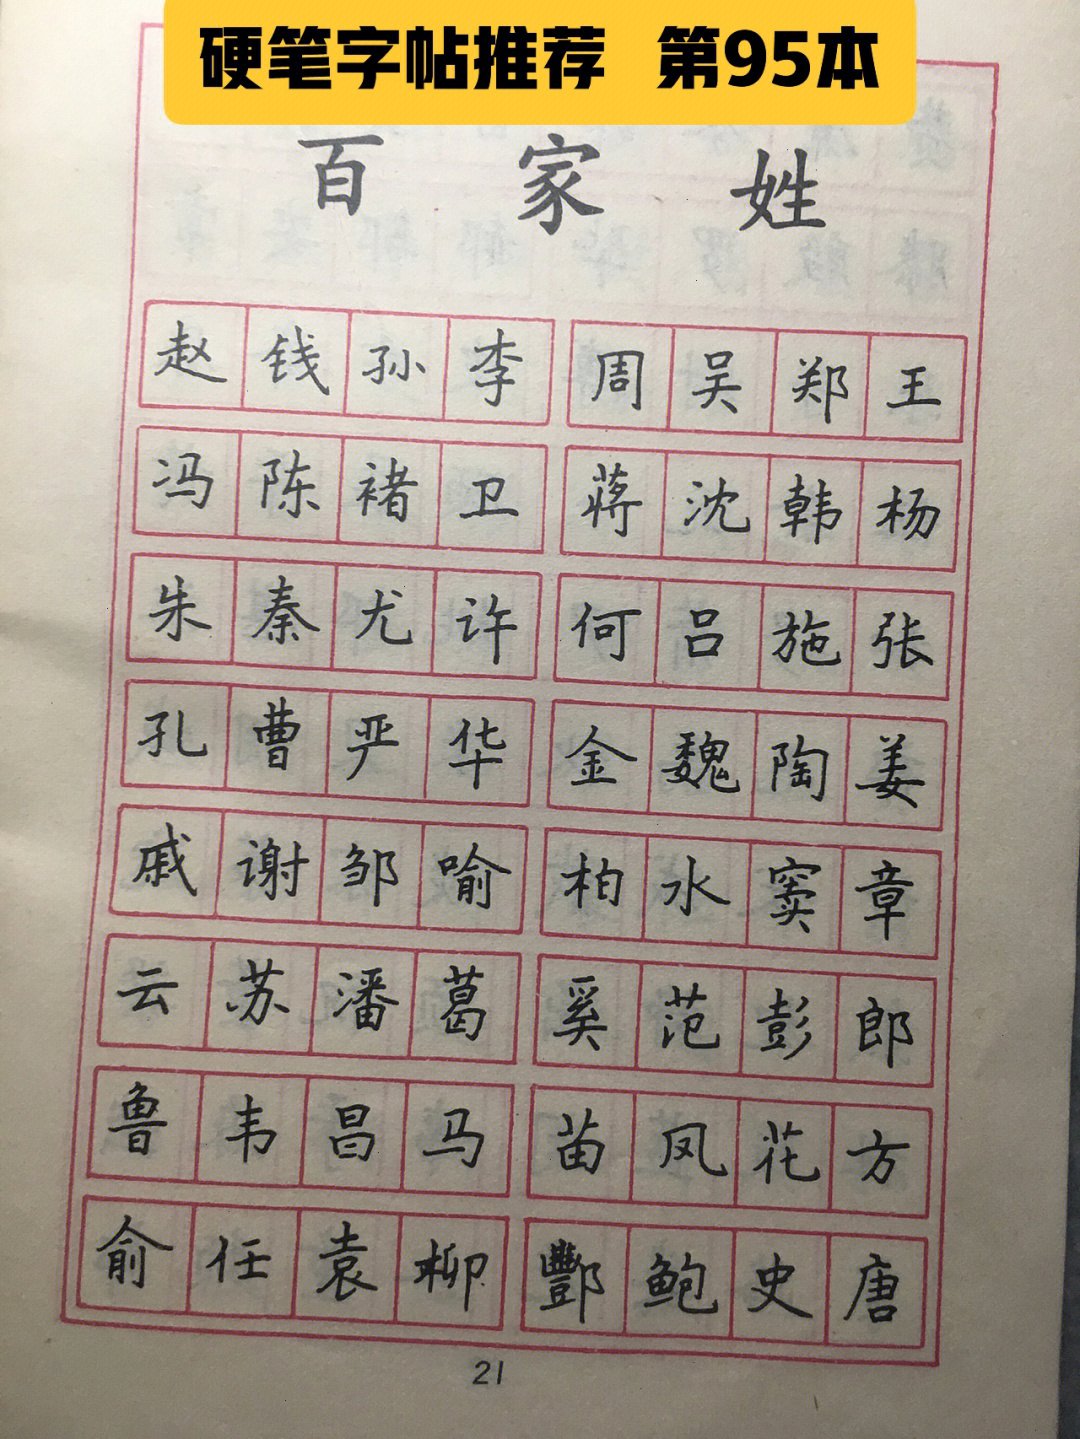 硬笔字帖推荐 第95本
百家姓
赵钱孙李 周吴郑王
冯陈褚卫 蒋沈韩杨
朱秦尤许 何吕施张
孔曹严华 金魏陶姜
戚谢邹喻 柏水窦章
云苏潘葛 奚范彭郎
鲁韦昌马 苗凤花方
俞任袁柳 酆鲍史唐
21